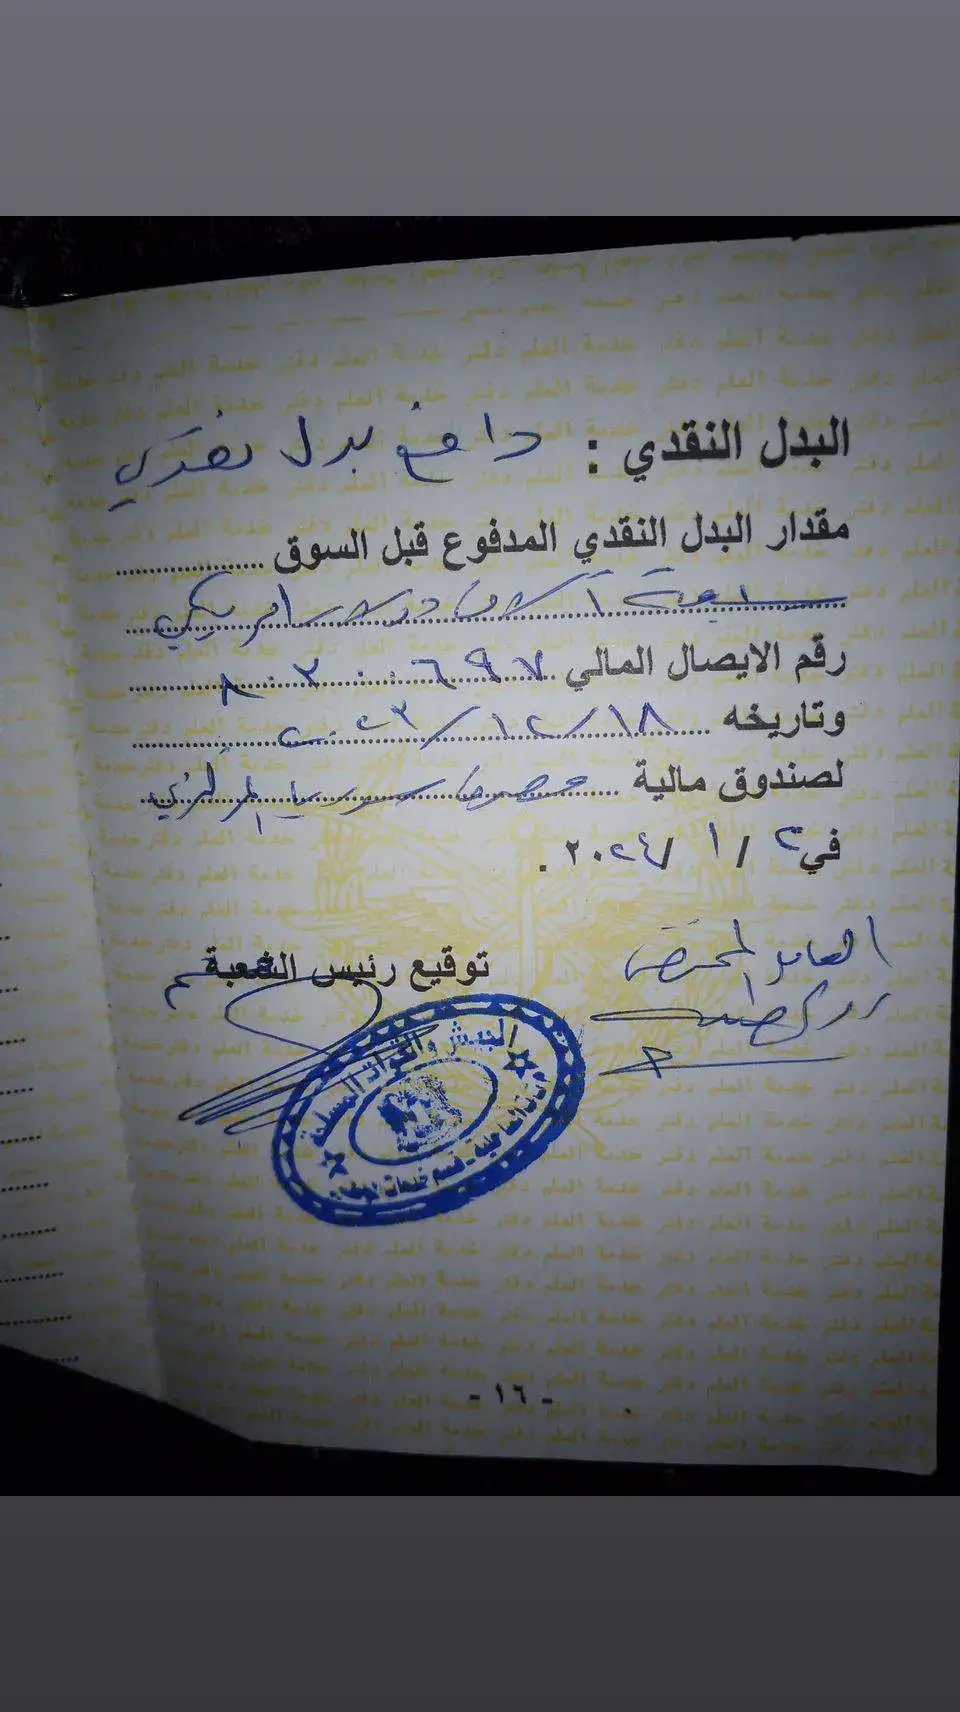 البدل النقدي : دافع بدل نقدي
مقدار البدل النقدي المدفوع قبل السوق
سبعة آلاف دولار امريكي
رقم الايصال المالي ٨٠٣٠٠٦٩٧
وتاريخه ٢٠٢٣/١٢/١٨
لصندوق مالية مصرف سوريا المركزي
في ٢ / ١ / ٢٠٢٤ .
العامل المختص
توقيع رئيس الشعبة
الجيش والقوات المسلحة
- ١٦ -